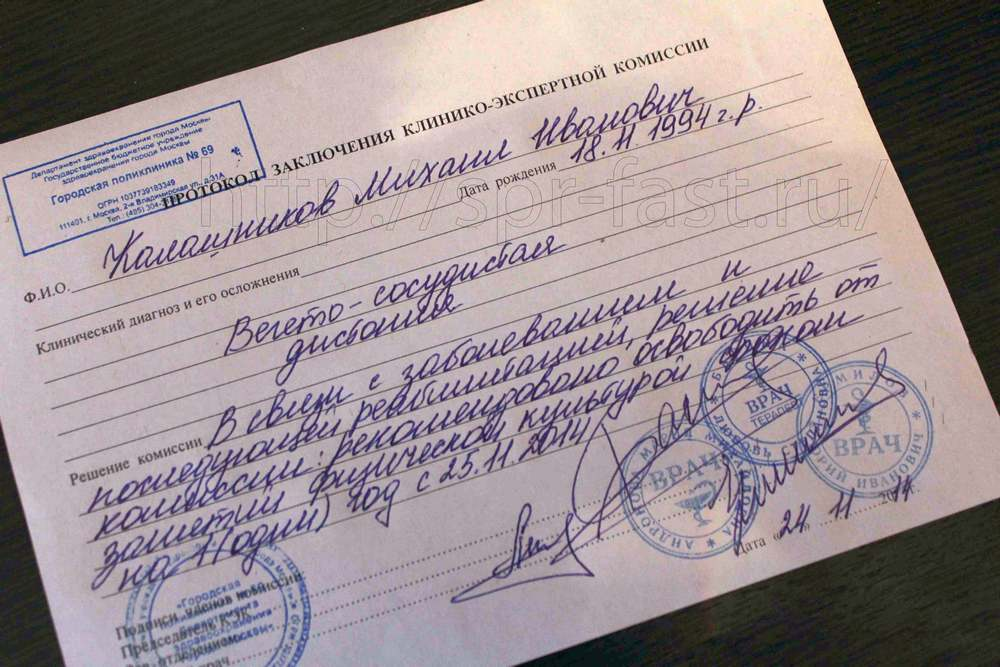 ПРОТОКОЛ ЗАКЛЮЧЕНИЯ КЛИНИКО-ЭКСПЕРТНОЙ КОМИССИИ
Департамент здравоохранения города Москвы
Государственное бюджетное учреждение
здравоохранения города Москвы
Городская поликлиника № 69
ОГРН 1037739183349
111401, г. Москва, 2-я Владимирская ул., д.31А
Тел.: (495) 304-
http://spr-fast.ru/
Ф.И.О. Калашников Михаил Иванович
Дата рождения 18.11.1994 г.р.
Клинический диагноз и его осложнения
Вегето-сосудистая
дистония
Решение комиссии В связи с заболеванием и
последующей реабилитацией, решение
комиссии: рекомендовано освободить от
занятий физической культурой сроком
на 1 (один) год с 25.11.2014
Подписи членов комиссии:
Председатель КЭК
Зав. отделением
врач
Дата «24» 11 2014
ВРАЧ
ВРАЧ
ТЕРАПЕВТ
ВРАЧ
ИВАНОВИЧ
«Городская